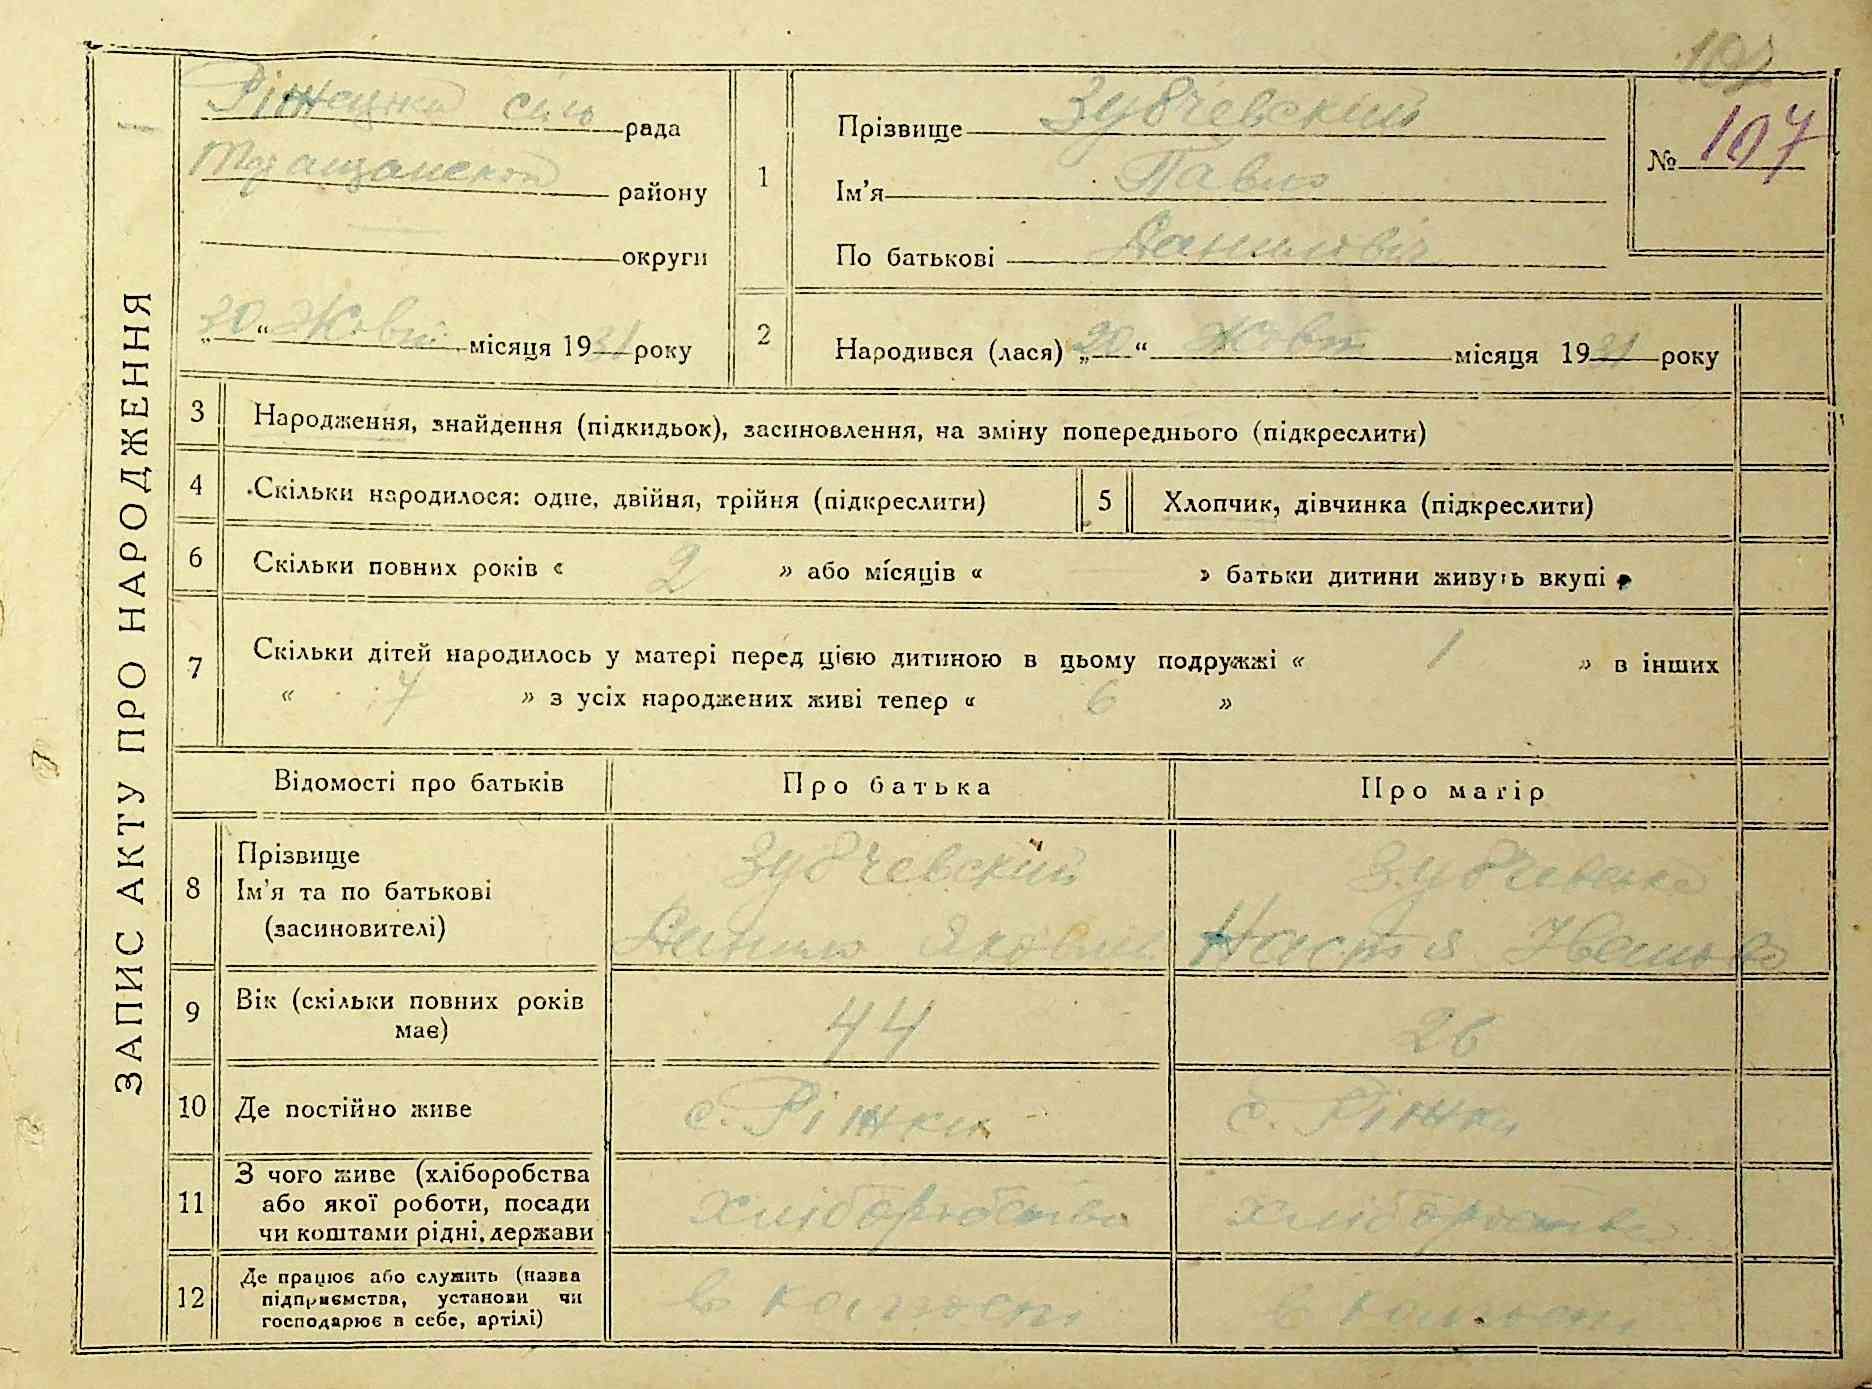 107
ЗАПИС АКТУ ПРО НАРОДЖЕННЯ
сіль рада
району
округи
30 “ Жовт місяця 1931 року
1
Прізвище Зубчевский
Ім’я Павло
По батькові Данилович
№ 107
2
Народився (лася) „ “ Жовт місяця 1931 року
3 Народження, знайдення (підкидьок), засиновлення, на зміну попереднього (підкреслити)
4 Скільки народилося: одне, двійня, трійня (підкреслити)
5 Хлопчик, дівчинка (підкреслити)
6 Скільки повних років « 2 » або місяців « — » батьки дитини живуть вкупі
7 Скільки дітей народилось у матері перед цією дитиною в цьому подружжі « 1 » в інших
« » з усіх народжених живі тепер « 6 »
Відомості про батьків Про батька Про матір
8 Прізвище
Ім’я та по батькові
(засиновителі)
Зубчевский
Данило Яковлев
Зубчевська
Настя Иванова
9 Вік (скільки повних років має) 44 26
10 Де постійно живе с. Ріжки с. Ріжки
11 З чого живе (хліборобства
або якої роботи, посади
чи коштами рідні, держави
хліборобства хліборобства
12 Де працює або служить (назва
підприємства, установи чи
господарює в себе, артілі)
в колгоспі в колгоспі